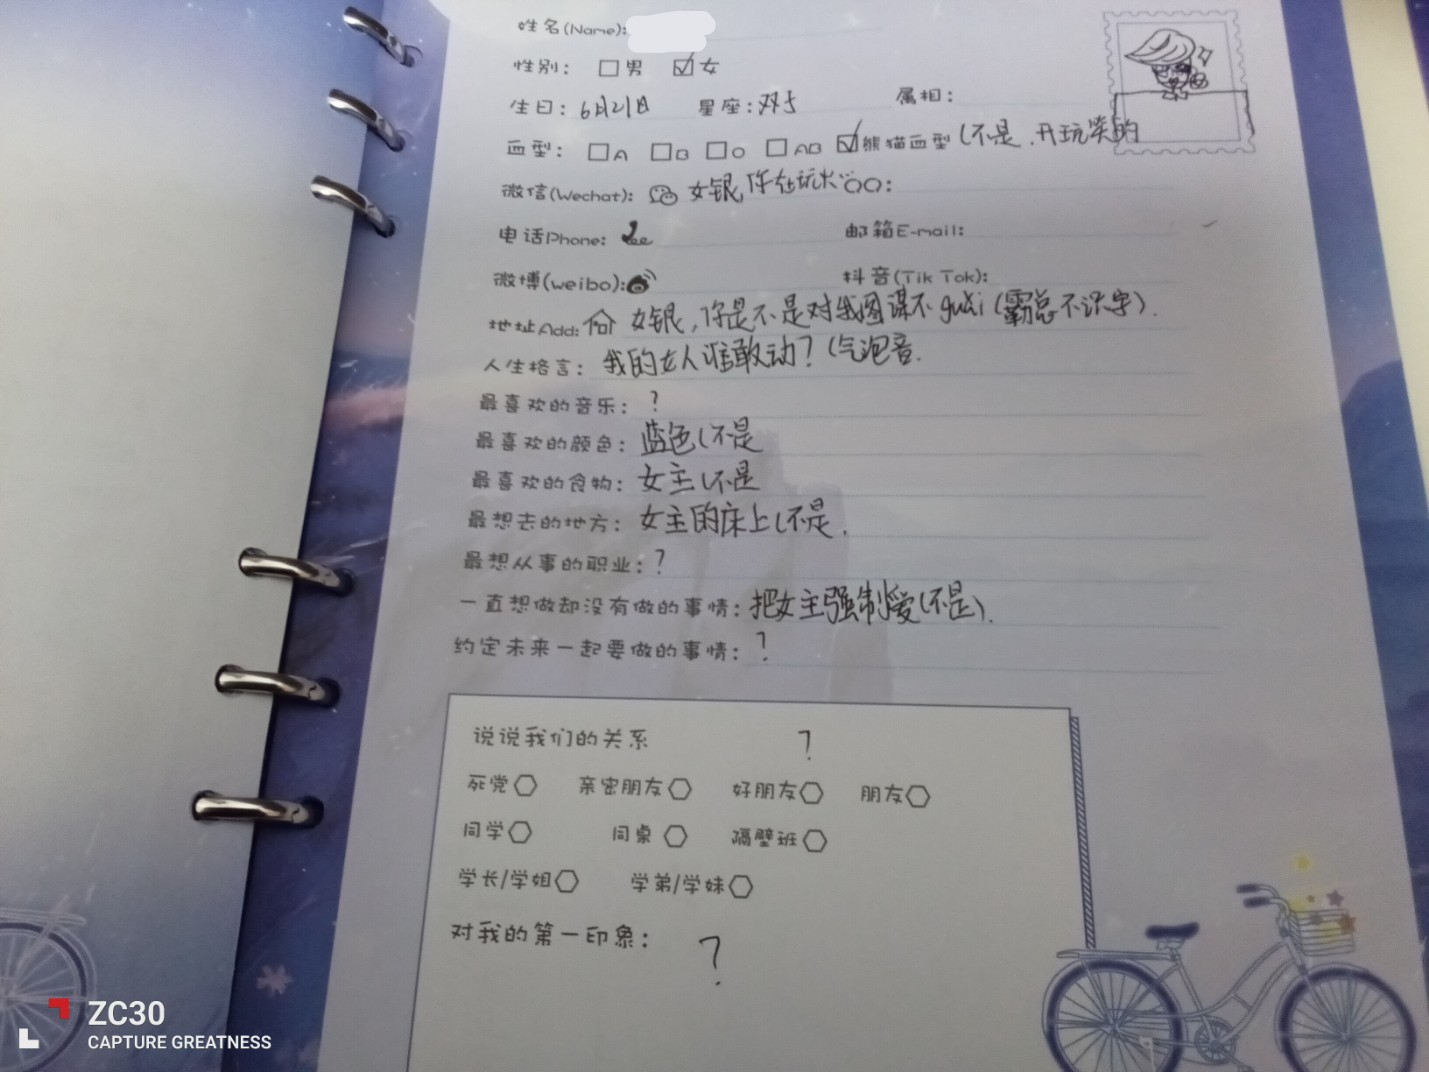 姓名(Name):
性别： □男 ☑女
生日：6月21日 星座：双子 属相：
血型： □A □B □O □AB ☑熊猫血型（不是，开玩笑的
微信(Wechat): 女银，你在玩火
电话Phone: 邮箱E-mail:
微博(weibo): 抖音(Tik Tok):
地址Add: 女银，你是不是对我图谋不guǐ（霸总不识字）.
人生格言：我的女人谁敢动？（气泡音.
最喜欢的音乐：？
最喜欢的颜色：蓝色（不是
最喜欢的食物：女主（不是
最想去的地方：女主的床上（不是.
最想从事的职业：？
一直想做却没有做的事情：把女主强制爱（不是）.
约定未来一起要做的事情：？
说说我们的关系 ？
死党 亲密朋友 好朋友 朋友
同学 同桌 隔壁班
学长/学姐 学弟/学妹
对我的第一印象： ？
ZC30
CAPTURE GREATNESS